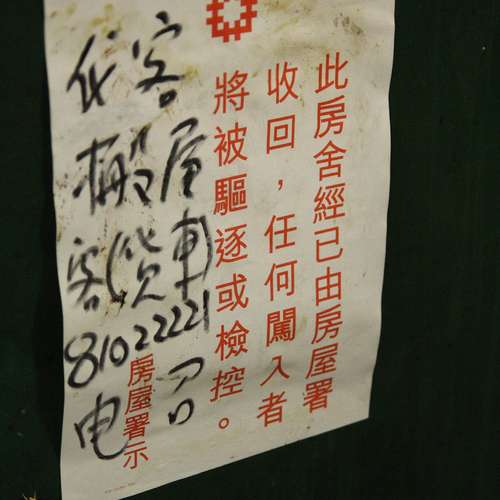 此房舍經已由房屋署
收回，任何闖入者
將被驅逐或檢控。
房屋署示
客屋車
代搬
客(货車)
81022221
电